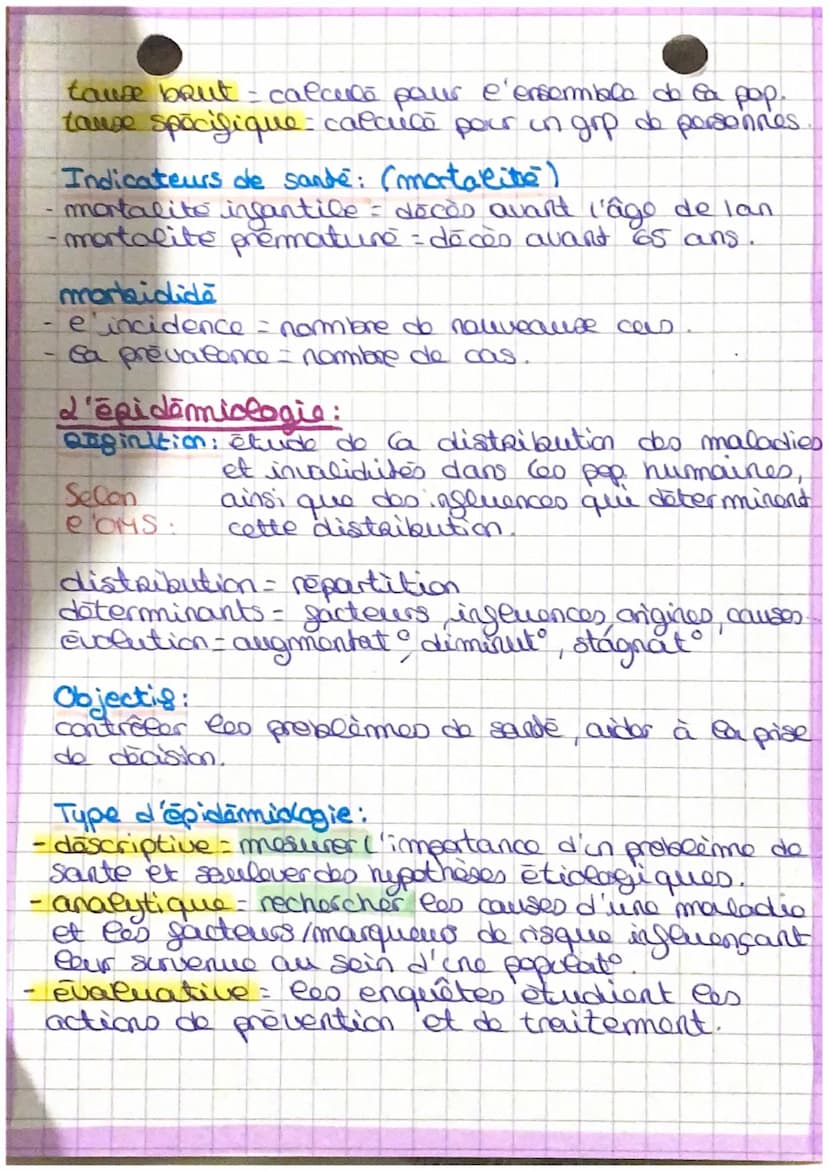 taux brut = calculé pour l'ensemble de la pop.
taux spécifique = calculé pour un grp de personnes.
Indicateurs de santé : (mortalité)
- mortalité infantile = décès avant l'âge de 1an
- mortalité prématuré = décès avant 65 ans.
morbididé
- l'incidence = nombre de nouveaux cas.
- la prévalence = nombre de cas.
L'épidémiologie :
Définition : étude de la distribution des maladies
et invalidités dans les pop. humaines,
Selon ainsi que des influences qui déterminent
l'OMS : cette distribution.
distribution = répartition
déterminants = facteurs, influences, origines, causes
évolution = augmentat°, diminut°, stagnat°
Objectif :
contrôler les problèmes de santé, aider à la prise
de décision.
Type d'épidémiologie :
- descriptive = mesurer l'importance d'un problème de
santé et soulever des hypothèses étiologiques.
- analytique = rechercher les causes d'une maladie
et les facteurs/marqueurs de risque influençant
leur survenue au sein d'une populat°.
- évaluative = les enquêtes étudient les
actions de prévention et de traitement.